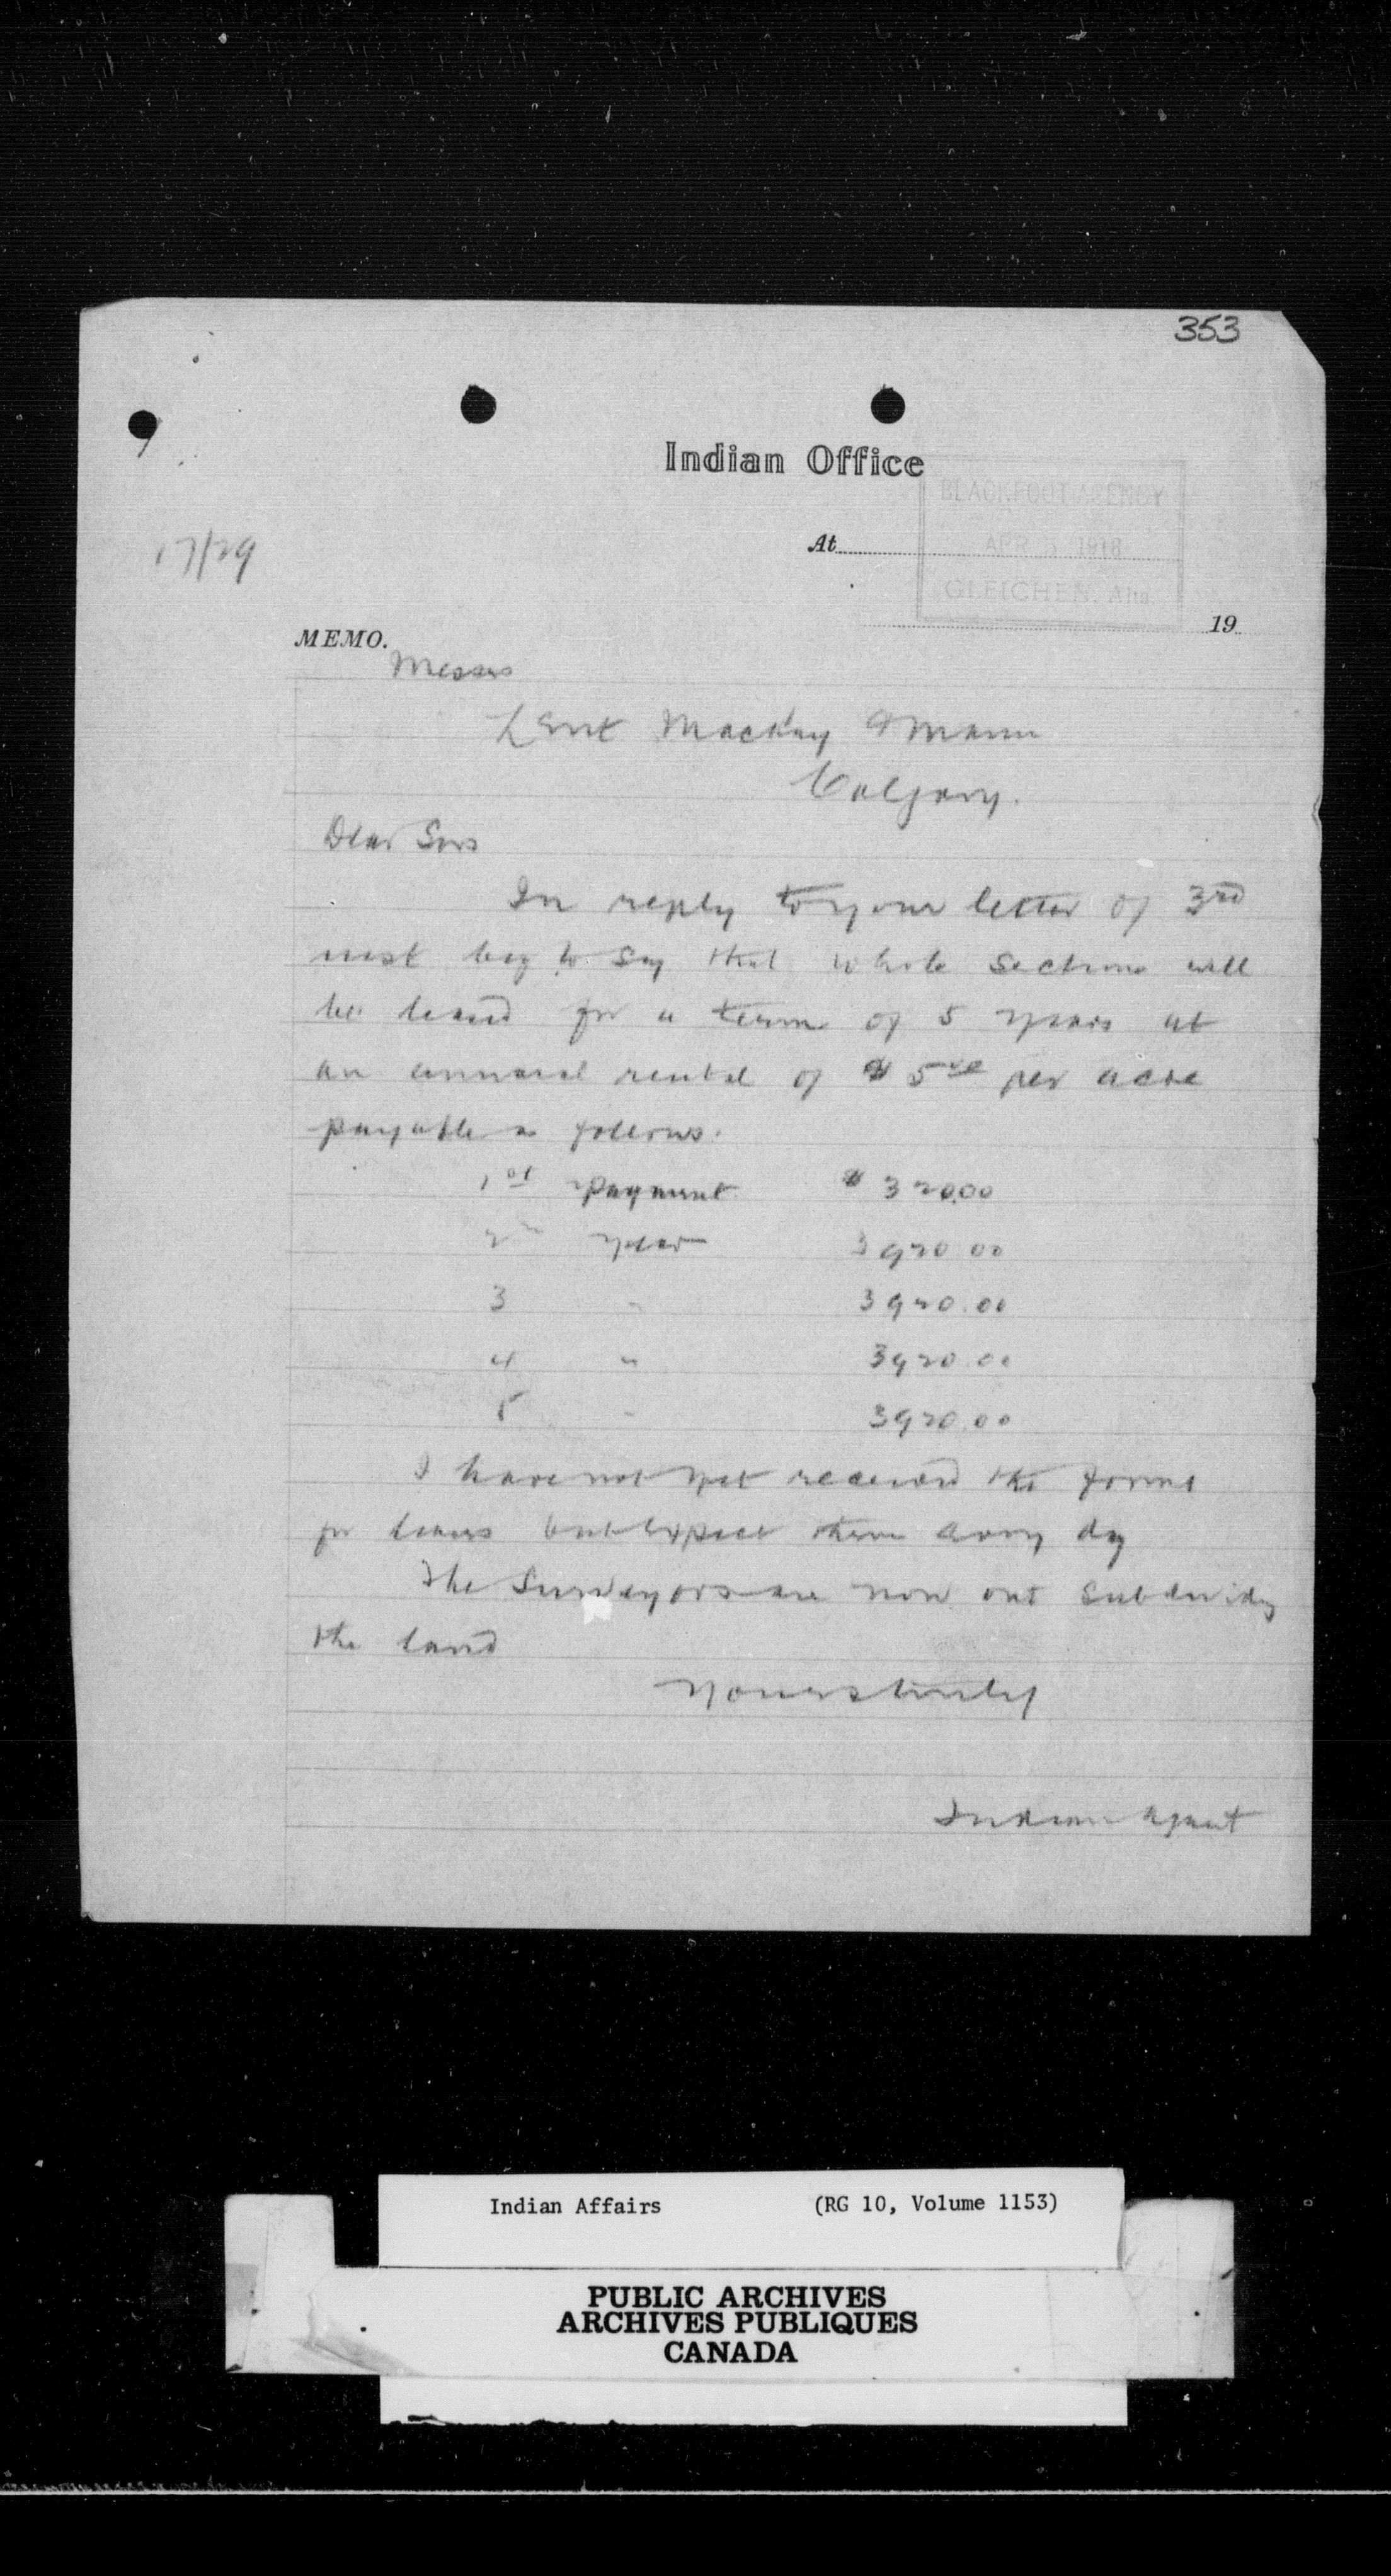 353
Indian Office
BLACKFOOT AGENCY
At
APR 5 1918
GLEICHEN, Alta.
17/29
19
MEMO.
Messrs
Lent Mackay & Mann
Calgary.
Dear Sirs
In reply to your letter of 3rd
inst beg to say that whole sections will
be leased for a term of 5 years at
an annual rental of $5 per acre
payable as follows.
1st payment $ 320.00
2nd year 3920 00
3 " 3920.00
4 " 3920.00
5 " 3920.00
I have not yet received the forms
for leases but expect them every day
The Surveyors are now out subdividing
the land
Yours truly
Indian Agent
Indian Affairs (RG 10, Volume 1153)
PUBLIC ARCHIVES
ARCHIVES PUBLIQUES
CANADA